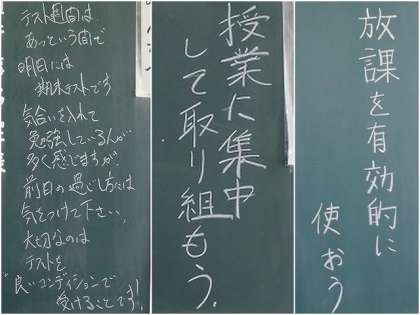 テスト週間は
あっという間で
明日には
期末テストです
気合いを入れて
勉強しているんが
多く感じますが
前日の過ごし方には
気をつけて下さい、
大切なのは
テストを
"良いコンディションで
受けることです!
授業に集中
して取り組もう.
放課を有効的に
使おう